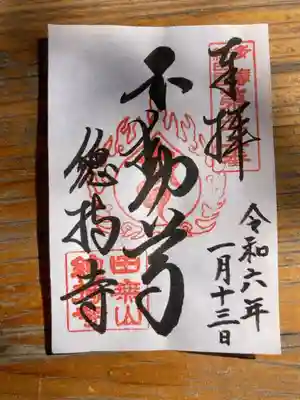 奉拝
令和六年
一月十三日
不動尊
田無山
總持寺